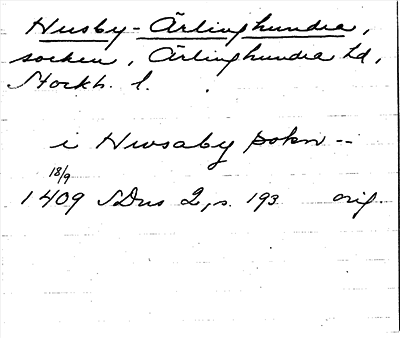 Husby-Ärlinghundra,
socken, Ärlinghundra hd,
Stockh. l.
i Hwsaby sokn --
18/9
1409 SDns 2, s. 193 orig.